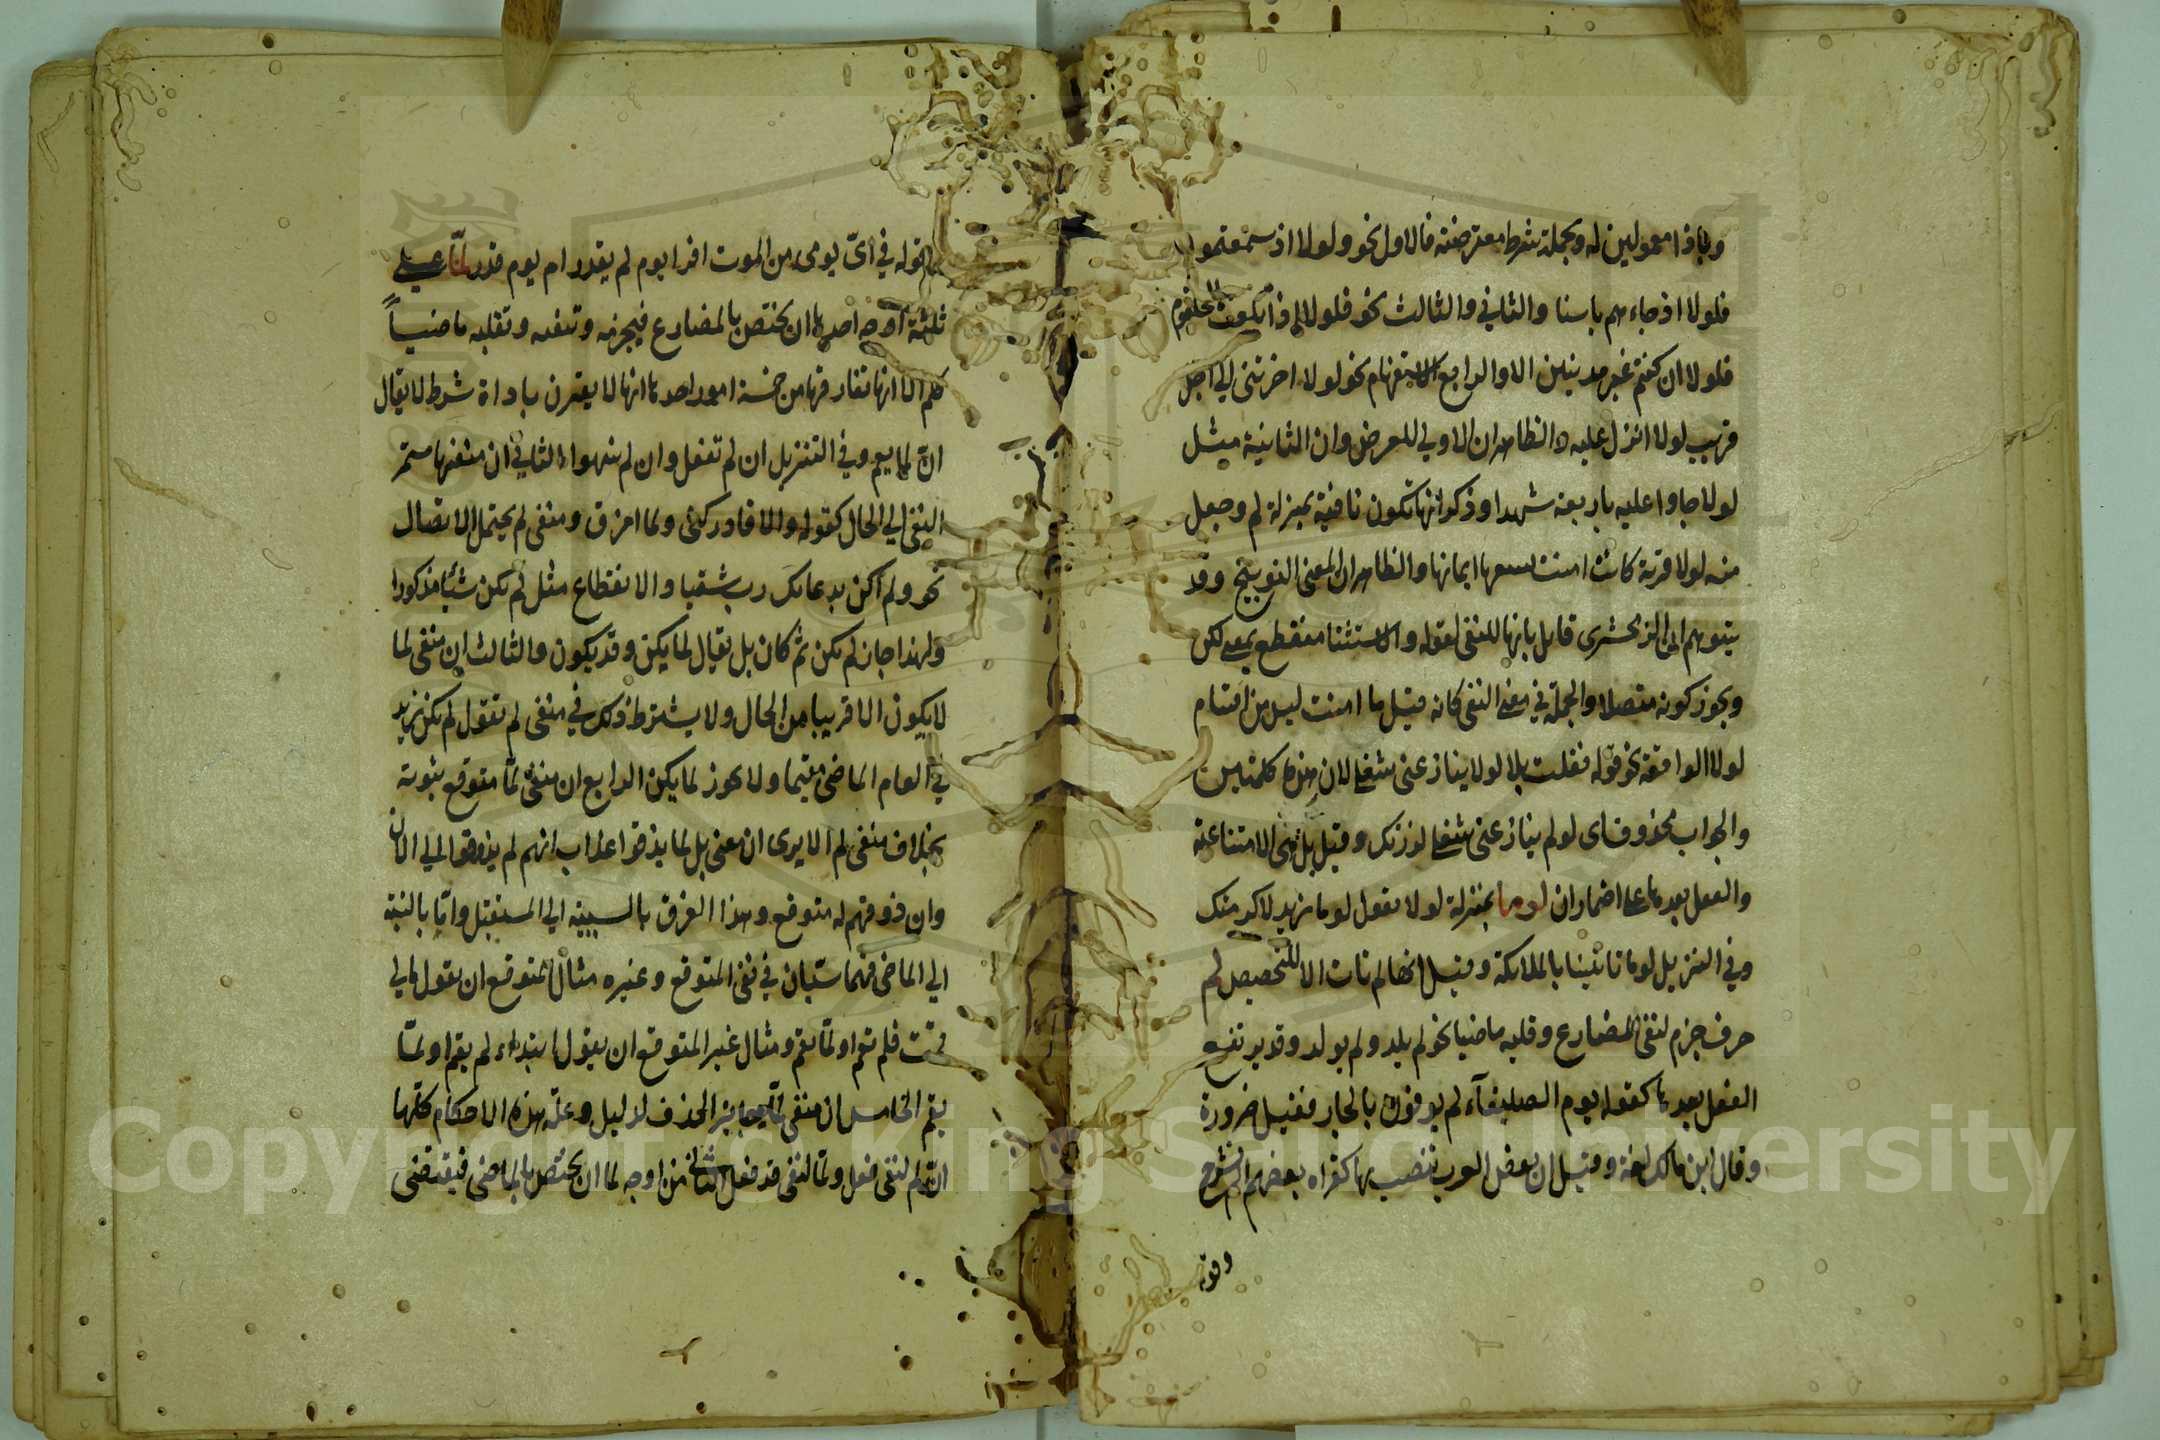 وباذا معمولين له وبجملة شرط معترضة فالاول نحو ولولا اذ سمعتموه
فلولا اذ جاءهم باسنا والثاني والثالث نحو فلولا اذا بلغت الحلقوم
فلولا ان كنتم غير مدينين الا والرابع الاستفهام نحو لولا اخرتني الي اجل
قريب لولا انزل عليه والظاهر ان الاولي للعرض وان الثانية مثل
لولا جاوا عليه باربعة شهدا وذكر انها تكون نافية بمنزلة لم وجعل
منه لولا قرية كانت امنت فنفعها ايمانها والظاهر ان المعني التوبيخ وقد
يتوهم ان الزمخشري قايل بانها للنفي لقوله والاستثنا منقطع بمعني لكن
ويجوز كونه متصلا والجملة في معني النفي كانه قيل ما امنت ليس من اقسام
لولا الواقعة نحو قوله فقلت بلا لولا ينازعني شغلي لان هذه كلمتين
والجواب محذوف اي لو لم ينازعني شغلي لزرتك وقيل بل هي الامتناعية
والفعل بعدها علي اضمار ان لوما بمنزلة لولا تقول لوما زيد لاكرمتك
وفي التنزيل لوما تاتينا بالملايكة وقيل انها لم تات الا للتحضيض لم
حرف جزم لنفي المضارع وقلبه ماضيا نحو لم يلد ولم يولد وقد يرتفع
الفعل بعدها كقوله يوم الصليفآء لم يوفون بالجار فقيل ضرورة
وقال ابن مالك لغة وقيل ان بعض العرب ينصب بها كقراه بعضهم الم نشرح
وقوله
كقوله في ايّ يومي من الموت افر ايوم لم يقدر ام يوم قدر لمّا علي
ثلثة اوجه احدها ان يختص بالمضارع فيجزمه وتنفيه وتقلبه ماضياً
كلم الا انها تفارقها من خمسة امور احدها انها لا يقترن باداة شرط لا يقال
ان لما يقم وفي التنزيل ان لم تفعل وان لم ينتهوا الثاني ان منفيها مستمر
النفي الي الحال كقوله والا فادركني ولما امزق ومنفي لم يحتمل الاتصال
نحو ولم اكن بدعائك رب شقيا والانقطاع مثل لم يكن شيئا مذكورا
ولهذا جاز لم يكن ثم كان بل يقال لما يكن وقد يكون والثالث ان منفي لما
لا يكون الا قريبا من الحال ولا يشترط ذلك في منفي لم تقول لم يكن زيد
في العام الماضي مقيما ولا يجوز لما يكن الرابع ان منفي لمّا متوقع ثبوته
بخلاف منفي لم الا يري ان معني بل لما يذوقوا عذاب انهم لم يذوقوا الي الان
وان ذوقهم له متوقع وهذا الفرق بالنسبة الي المستقبل وامّا بالنسبة
الي الماضي فهما سيان في نفي المتوقع وغيره مثال المتوقع ان يقول مالي
قمت فلم تقم او لمّا تقم ومثال غير المتوقع ان يقول ابتداء لم يقم او لمّا
يقم الخامس ان منفي لمّا جايز الحذف لدليل وعلّة هذه الاحكام كلّها
انّ لم لنفي فعل ولمّا لنفي قد فعل الثاني من اوجه لما ان يختص بالماضي فيقتضي